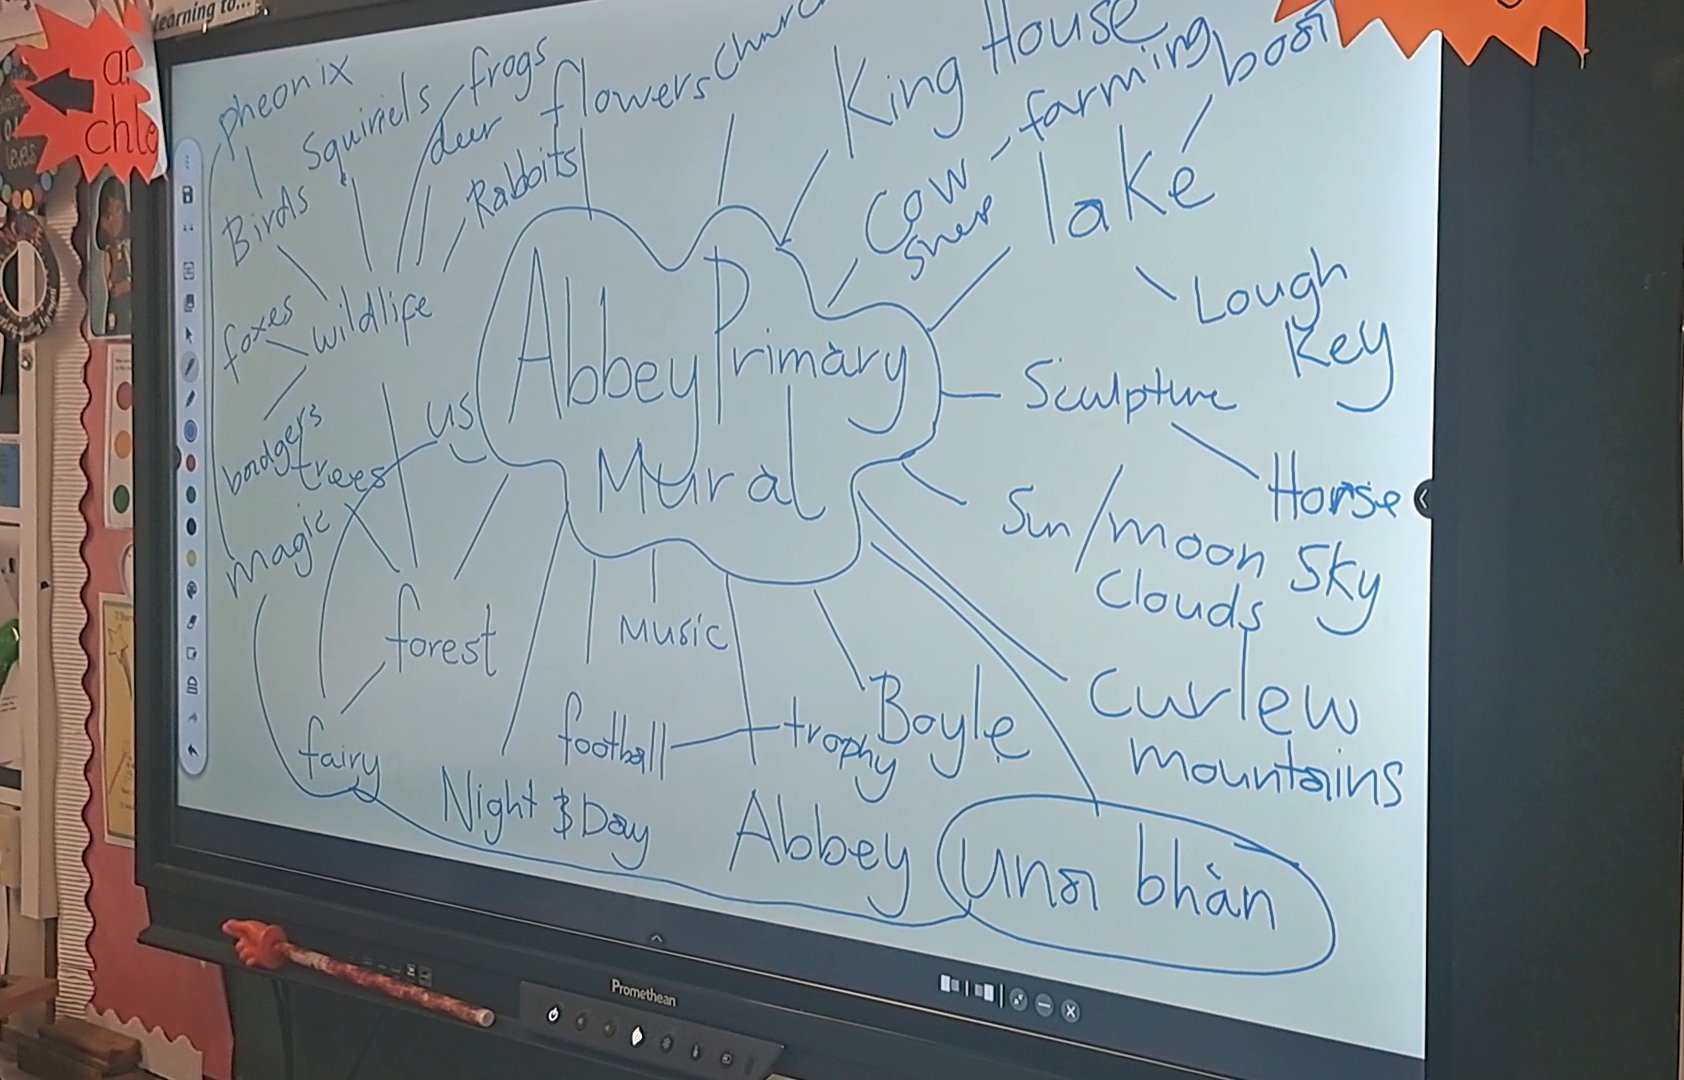 learning to...
ar
chle
pheonix
Squirriels
frogs
deer
flowers
Church
King House
farming
boat
Birds
Rabbits
Cow
lake
foxes
wildlife
Abbey Primary
Mural
Lough
Key
us
Sculpture
badgers
trees
Horse
magic
Sun/moon Sky
Clouds
forest
Music
fairy
football
trophy
Boyle
Abbey
Curlew
mountains
Night & Day
una bhàn
Promethean